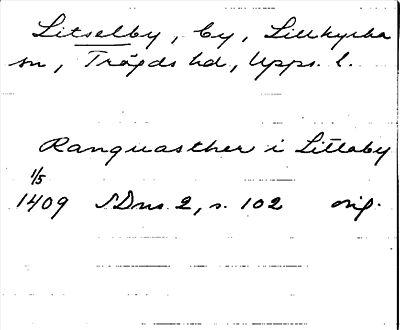 Litselby, by, Lillkyrka
sn, Trögds hd, Upps. l.
Ranguasther i Litlaby
1/5
1409 SDns 2, s. 102 orig.